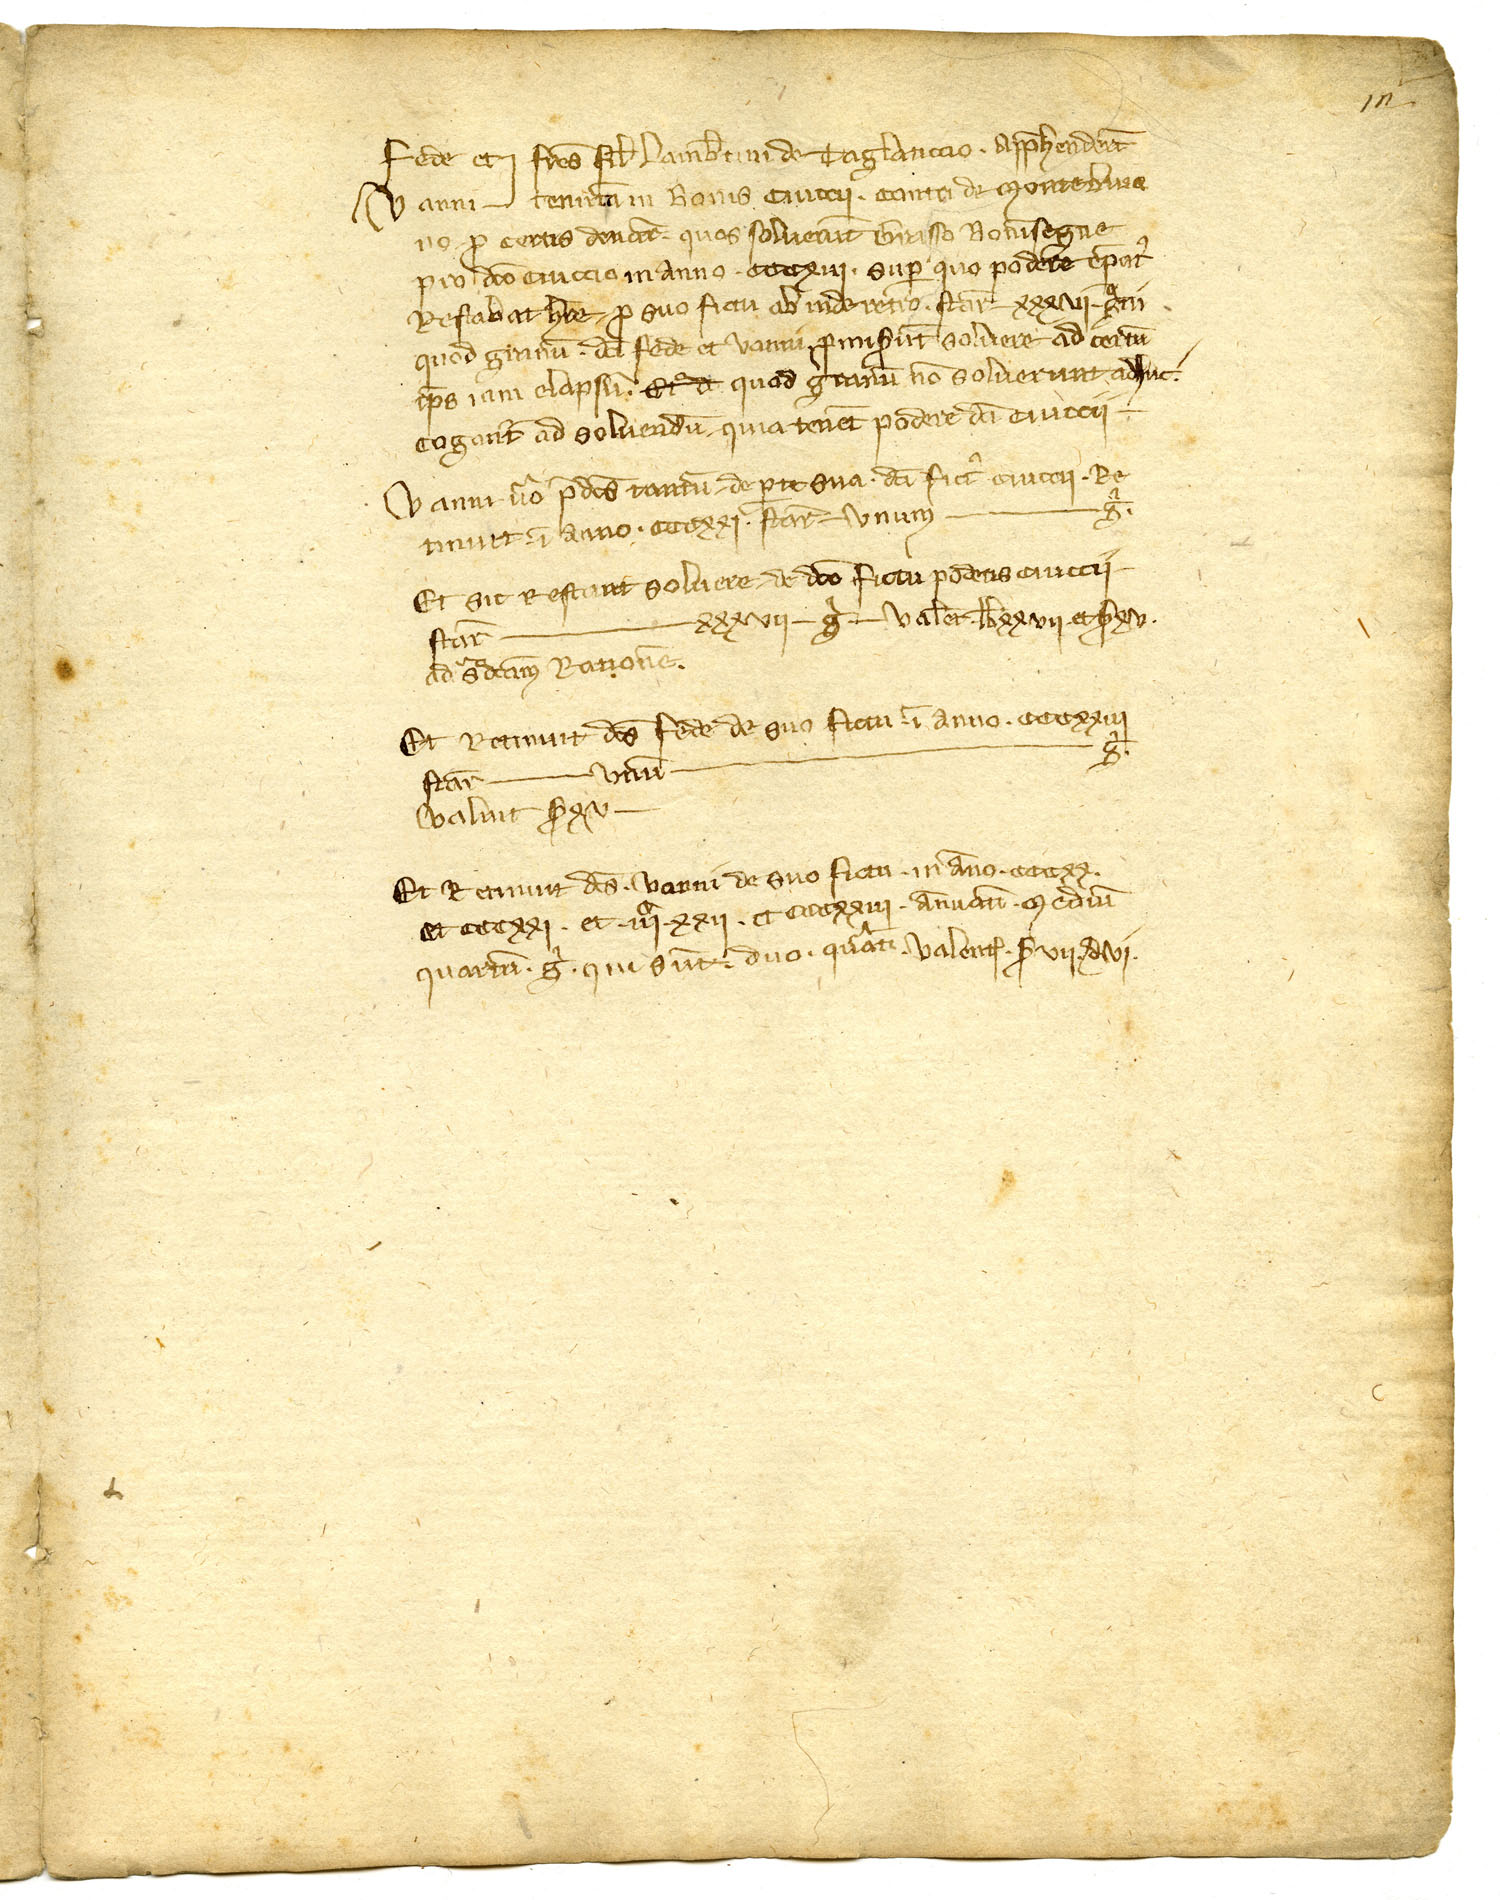 Fede et fres fil Lambtini de Taglanccio. Apphendert
Vanni tenuta in Bonis Ciuccii. Conti de Montebuia
no p certis denar quos soluerut Grasso Bonisegne
pro dco Ciuccio in Anno. cccxiii. sup quo podere
Restabat hre p suo fictu ab inde retro. star xxxvii
quod granu. dci fede et vanni pmiserut soluere ad certu
tps iam elapsu. quod granu no soluerunt adhuc.
Cogant ad soluendu quia tenet podere dci Ciuccii
Vanni vo pdcs tantu de pte sua. dci fict Ciuccii. Re
tinuit i Anno. cccxxi. star Unum g.
Et sic Restant soluere de dco fictu poderis Ciuccii
star xxxvii g valet lb xxvii et s xv.
ad sdcam Ratione.
Et Retinuit dcs fede de suo fictu i Anno. cccxxiii
star unu g.
Valuit s xv
Et Retinuit dcs. Vanni de suo fictu. in Ano. cccxx.
et cccxxi. et xxii. et cccxxiii. Annuati. Mediu
quartu. g. qui sut. duo. quarti. valent. s vii. d vi.